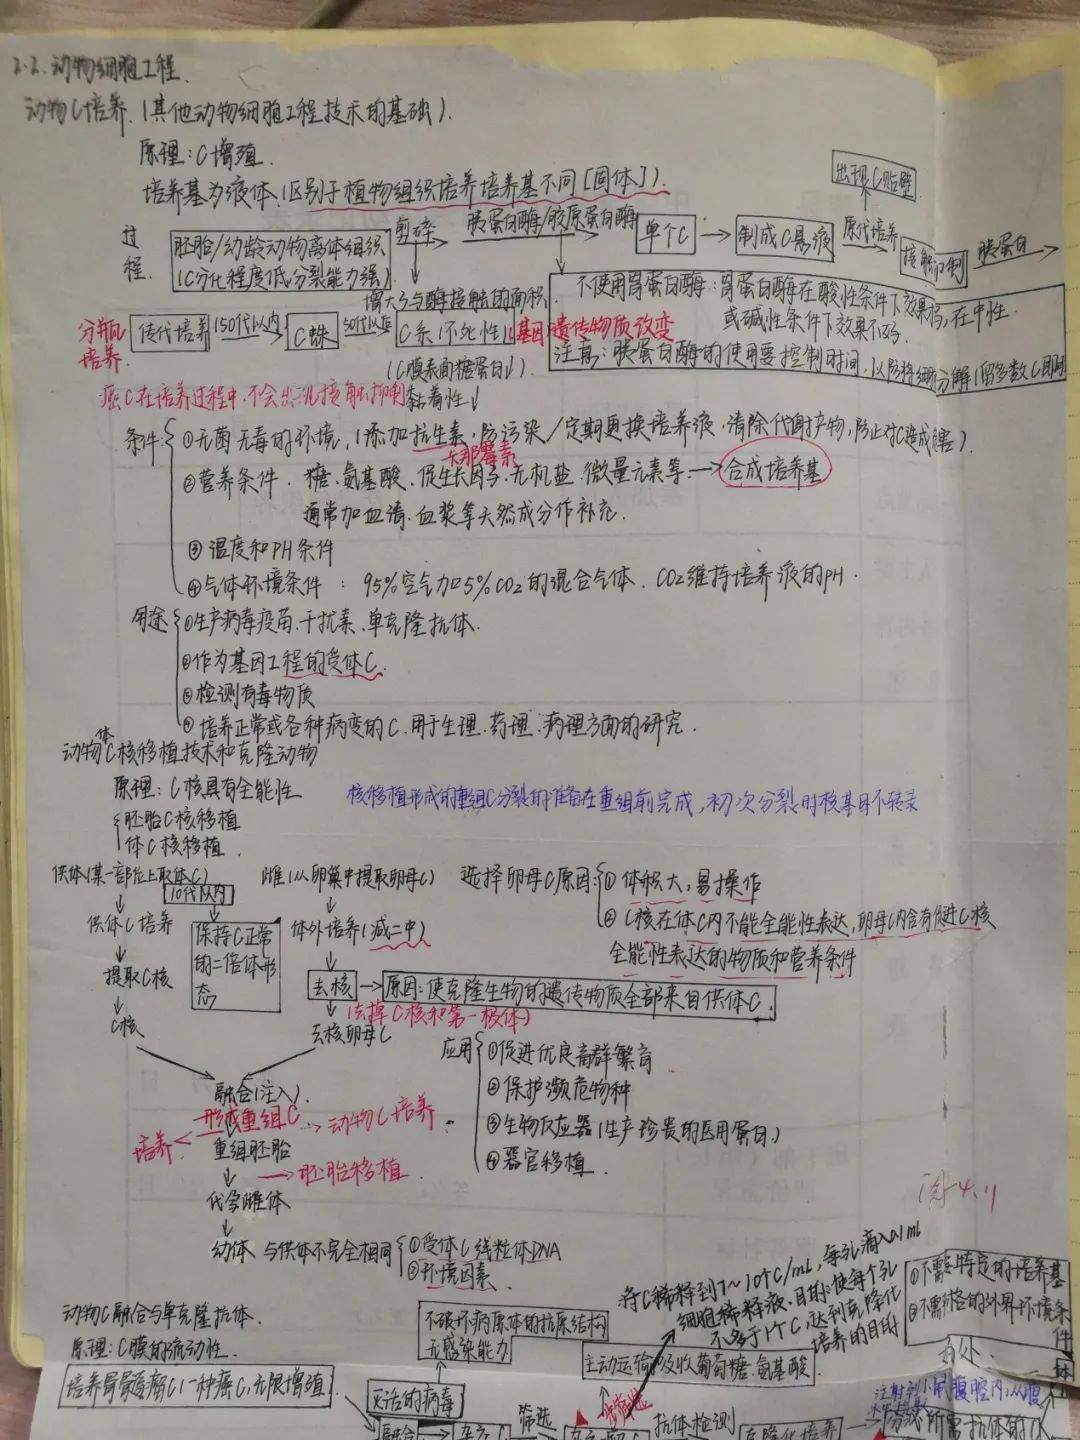 2.2.动物细胞工程.
动物C培养.(其他动物细胞工程技术的基础).
原理:C增殖.
培养基为液体.(区别于植物组织培养培养基不同[固体]).
出现C贴壁
过程.
胚胎/幼龄动物离体组织
(C分化程度低分裂能力强)
剪碎
胰蛋白酶/胶原蛋白酶
单个C
制成C悬液
原代培养
接触抑制
胰蛋白
增大了与酶接触的面积
不使用胃蛋白酶:胃蛋白酶在酸性条件下效果好,在中性
或碱性条件下效果不好
注意:胰蛋白酶的使用要控制时间,以防将细胞分解(留多数C
分瓶培养
传代培养
150代以内
C株
50代以后
C系(不死性)(基因遗传物质改变
(C膜表面糖蛋白↓).
黏着性↓
癌C在培养过程中,不会出现接触抑制
条件:
①无菌无毒的环境,(添加抗生素,防污染/定期更换培养液,清除代谢产物,防止对C造成危害).
卡那霉素
②营养条件.糖.氨基酸.促生长因子.无机盐.微量元素等→合成培养基
通常加血清.血浆等天然成分作补充.
③温度和PH条件
④气体环境条件:95%空气加5%CO2的混合气体.CO2维持培养液的PH.
用途
①生产病毒疫苗.干扰素.单克隆抗体.
②作为基因工程的受体C.
③检测有毒物质
④培养正常或各种病变的C.用于生理.药理.病理方面的研究.
动物体C核移植技术和克隆动物
原理:C核具有全能性
核移植形成的重组C分裂的准备在重组前完成,初次分裂时核基因不转录
胚胎C核移植
体C核移植.
供体(某一部位上取体C)
雌(从卵巢中提取卵母C)
选择卵母C原因:①体积大,易操作
②C核在体C内不能全能性表达,卵母C内含有促进C核
全能性表达的物质和营养条件
10代以内
供体C培养
保持C正常的二倍体形态
体外培养(减二中)
提取C核
去核→原因:使克隆生物的遗传物质全部来自供体C.
(去掉C核和第一极体)
C核
去核卵母C
应用
①促进优良畜群繁育
②保护濒危物种
③生物反应器(生产珍贵的医用蛋白)
④器官移植.
融合(注入).
形成重组C→动物C培养
培养
重组胚胎
→胚胎移植
代孕雌体
幼体 与供体不完全相同
①受体C线粒体DNA
②环境因素.
将C稀释到7~10个C/mL,每孔滴入0.1mL
细胞稀释液.目的:使每个孔
不多于1个C,达到克隆化
培养的目的
①不需要特定的培养基
②不需严格的外界环境条件
动物C融合与单克隆抗体.
原理:C膜的流动性.
不破坏病原体的抗原结构
无感染能力
主动运输吸收葡萄糖.氨基酸
培养骨髓瘤C(一种癌C,无限增殖
灭活的病毒
融合
杂交C
筛选
抗体检测
克隆化培养